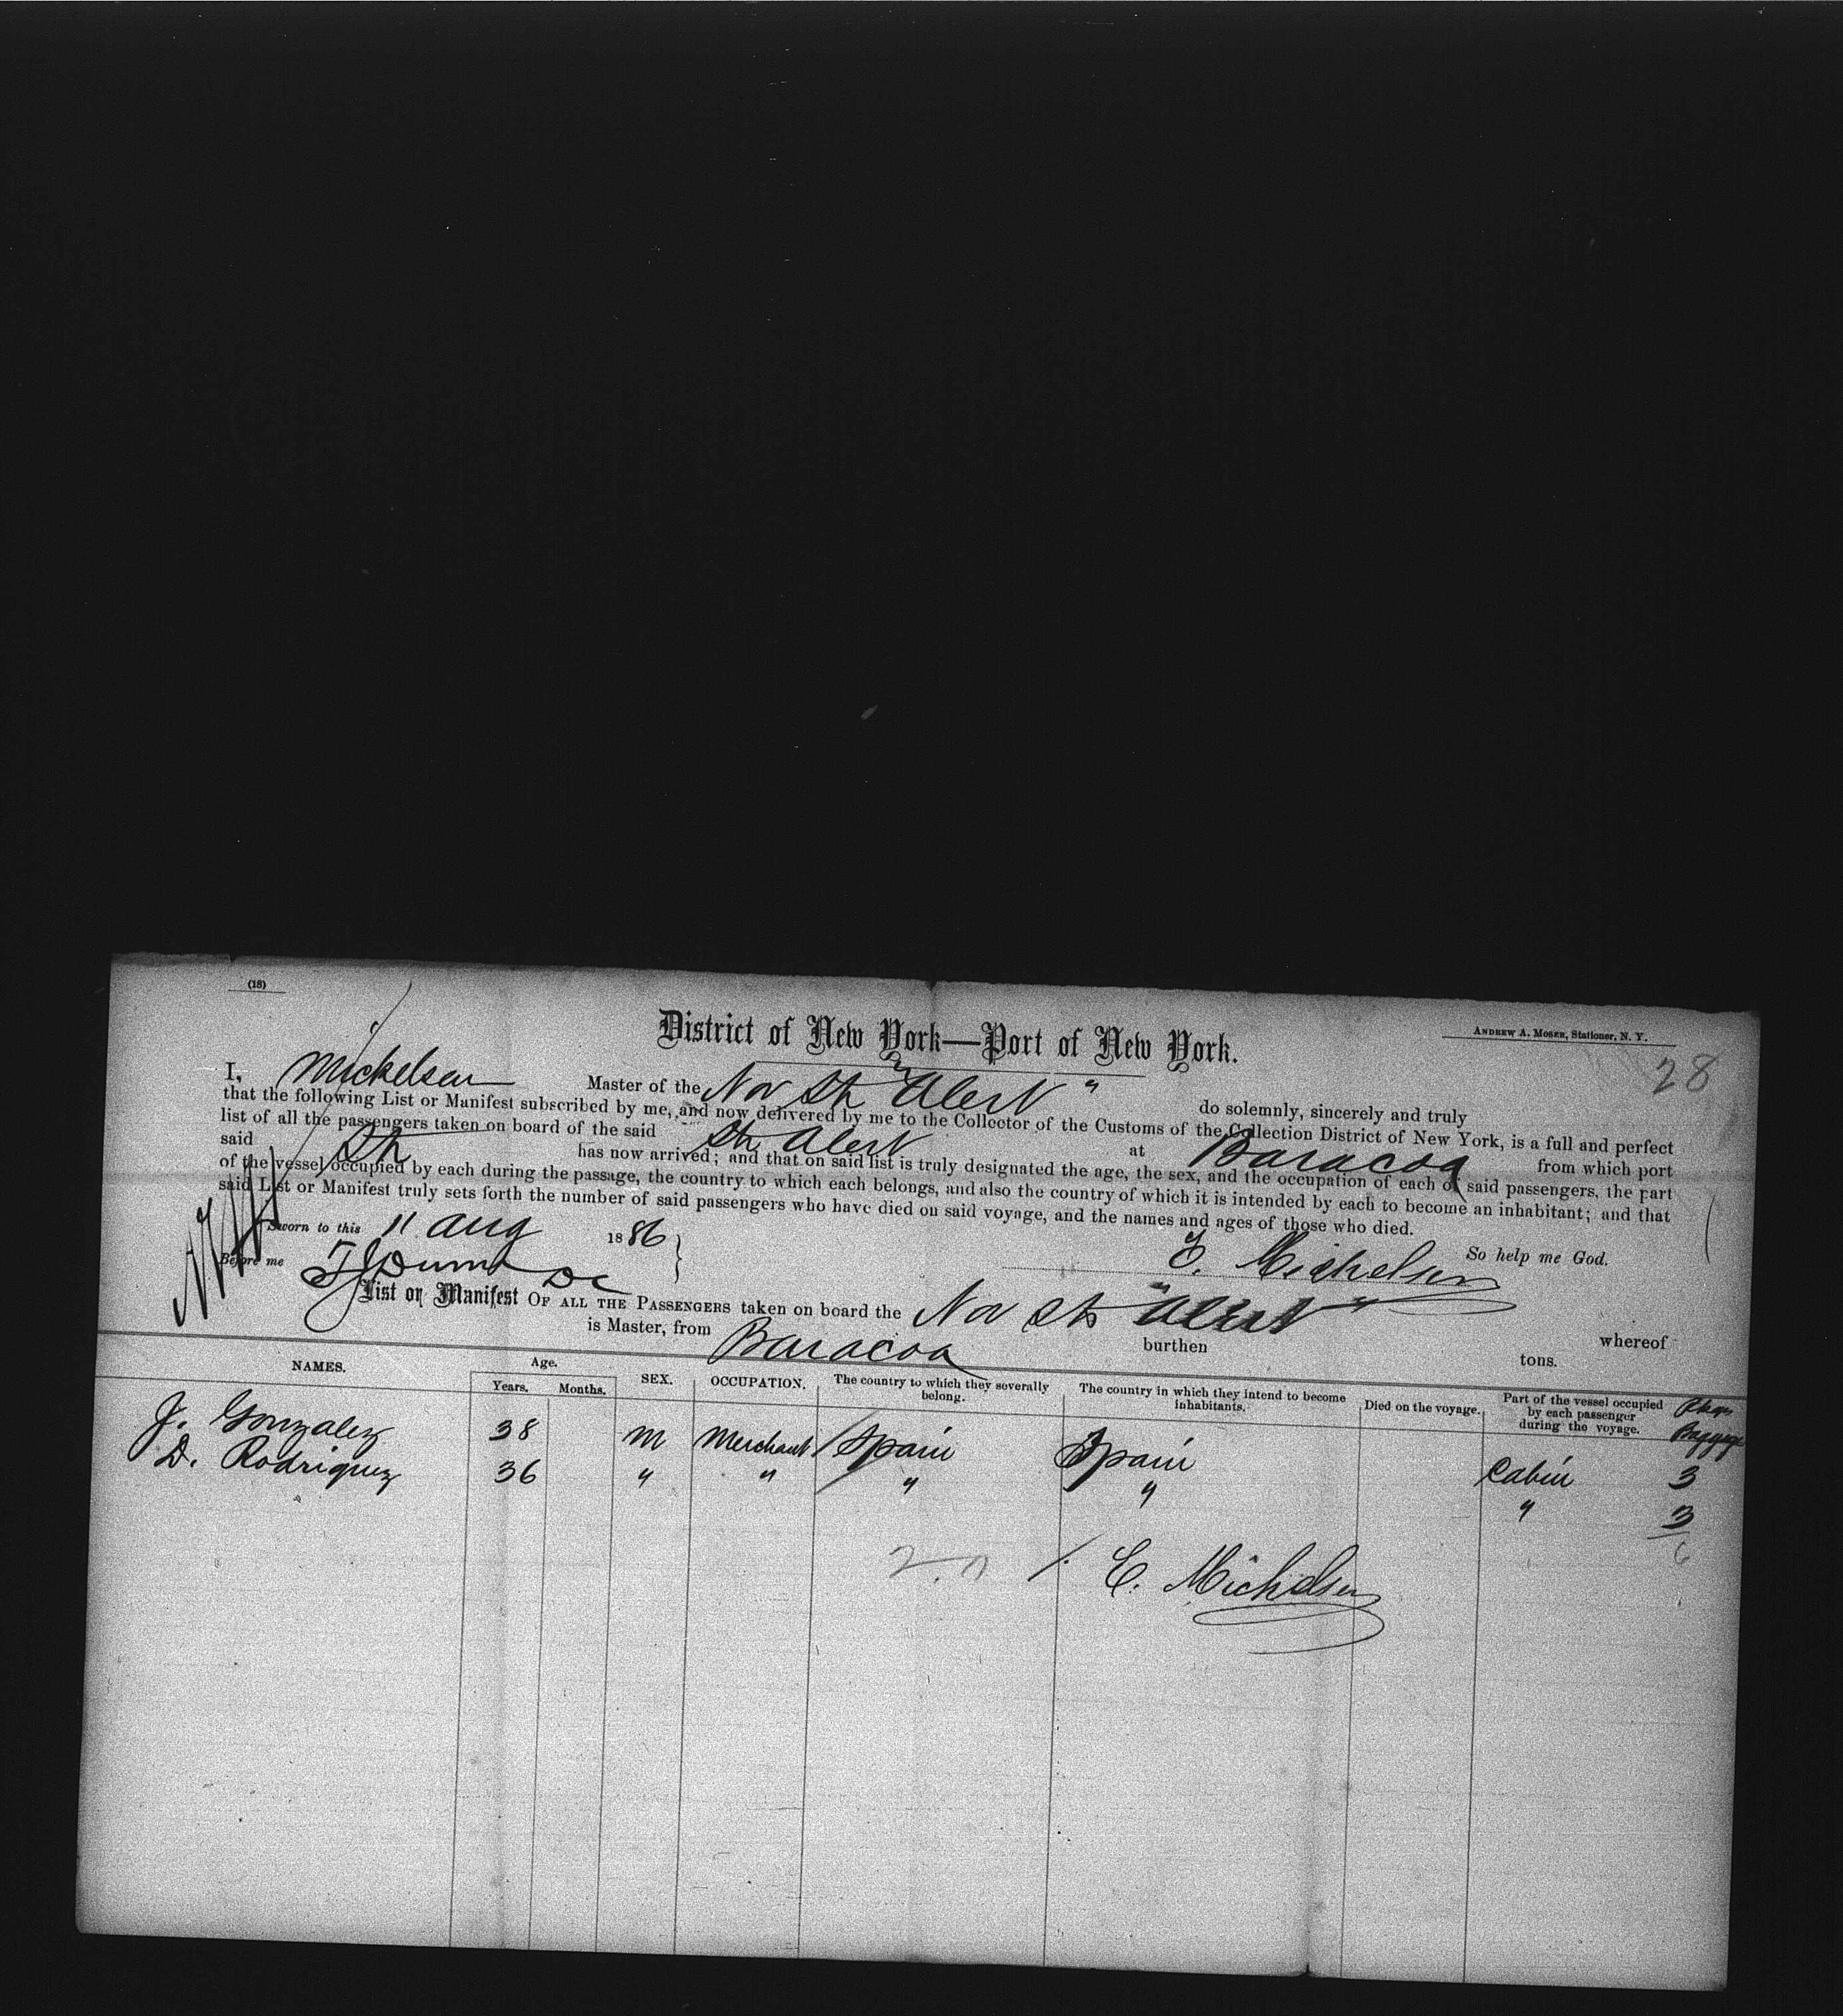 (18)
District of New York—Port of New York.
ANDREW A. MOSER, Stationer, N. Y.
28
I, Mickelsen Master of the Nor Str "Alert" do solemnly, sincerely and truly
that the following List or Manifest subscribed by me, and now delivered by me to the Collector of the Customs of the Collection District of New York, is a full and perfect
list of all the passengers taken on board of the said Str Alert at Baracoa from which port
said Str has now arrived; and that on said list is truly designated the age, the sex, and the occupation of each of said passengers, the part
of the vessel occupied by each during the passage, the country to which each belongs, and also the country of which it is intended by each to become an inhabitant; and that
said List or Manifest truly sets forth the number of said passengers who have died on said voyage, and the names and ages of those who died.
Sworn to this 11 Aug 1886
So help me God.
Before me
E. Michelsen
List or Manifest OF ALL THE PASSENGERS taken on board the Nor Str "Alert" whereof
is Master, from Baracoa burthen tons.
NAMES. Age. SEX. OCCUPATION. The country to which they severally belong. The country in which they intend to become inhabitants. Died on the voyage. Part of the vessel occupied by each passenger during the voyage. Baggage
Years. Months.
J. Gonzalez 38 M Merchant Spain Spain Cabin 3
D. Rodriguez 36 " " " " " 3
6
E. Michelsen